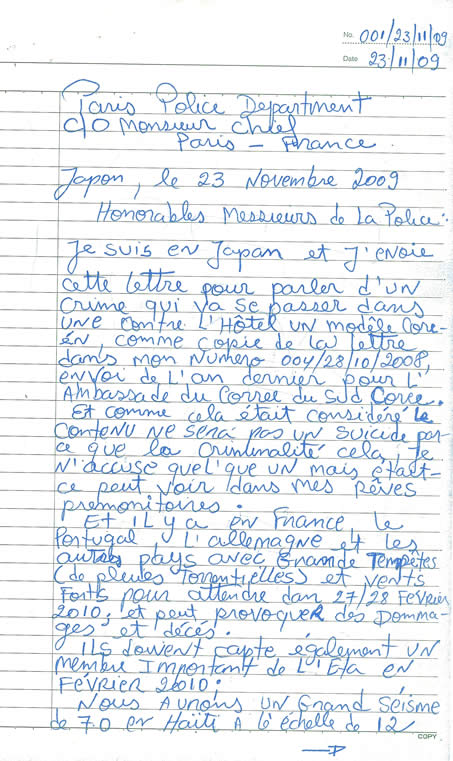 No. 001/23/11/09
Date 23/11/09
Paris Police Department
C/O Monsieur Chief
Paris – France
Japon, le 23 Novembre 2009
Honorables Messieurs de La Police:
Je suis en Japan et J'enoie
cette lettre pour parler d'un
crime qui va se passer dans
une contre L'Hôtel un modèle Core-
en, comme copie de la lettre
dans mon Numero 004/28/10/2008,
envoi de L'an dernier pour L'
Ambassade du Corree du Sud Coree.
Et comme cela était considéré le
contenu ne sera pas un suicide par-
ce que la Criminalité cela, Je
N'accuse quel'que un mais était-
ce peut voir dans mes Rêves
premonitoires.
Et il y a en France, le
Portugal, L'allemagne et les
autres pays avec Grande Tempêtes
(de pleuies Torrentielles) et vents
Forts pour attendre dan 27/28 Fevrier
2010, et peut provoquer des Domma-
ges, et décés.
ILs doivent capte également un
membre Important de L'Eta en
FÉVRIER 2010;
Nous Aurons un Grand Séisme
de 7.0 en Haïti A l'échelle de 12
COPY